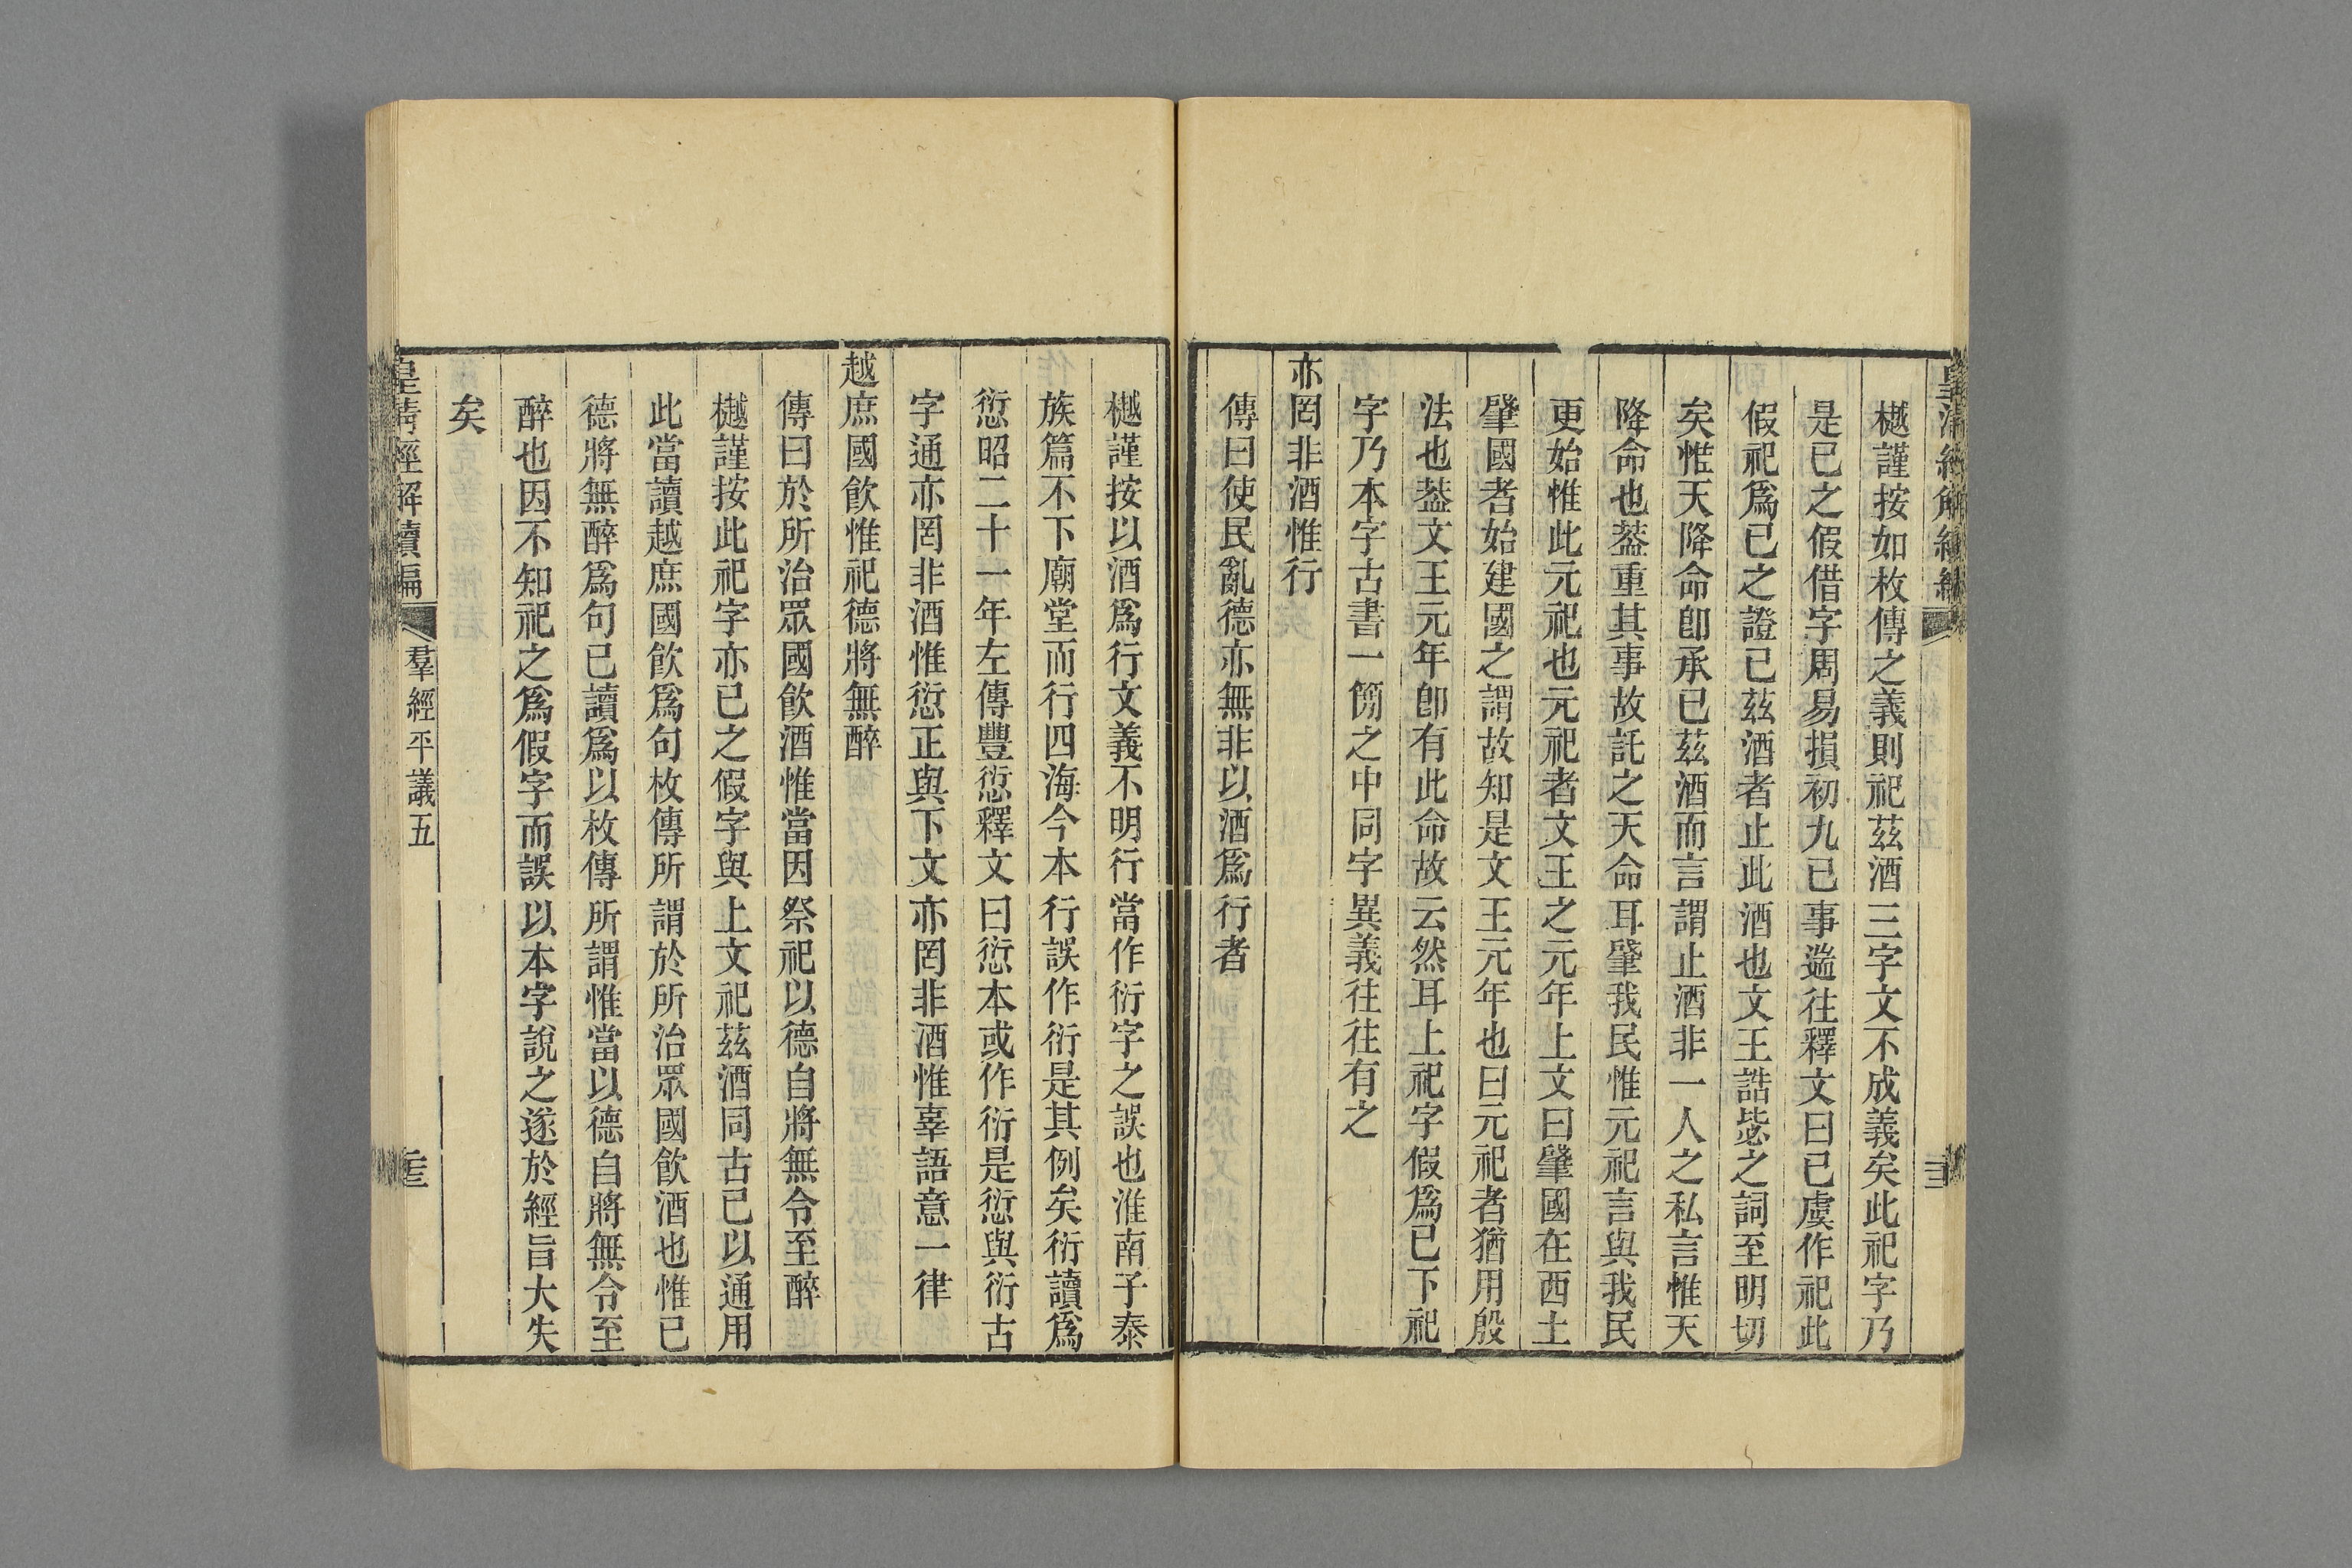 樾謹按如枚傳之義則祀茲酒三字文不成義矣此祀字乃
是已之假借字周易損初九已事遄往釋文曰已虞作祀此
假祀爲已之證已茲酒者止此酒也文王誥毖之詞至明切
矣惟天降命卽承已茲酒而言謂止酒非一人之私言惟天
降命也葢重其事故託之天命耳肇我民惟元祀言與我民
更始惟此元祀也元祀者文王之元年上文曰肇國在西土
肇國者始建國之謂故知是文王元年也曰元祀者猶用殷
法也葢文王元年卽有此命故云然耳上祀字假爲已下祀
字乃本字古書一簡之中同字異義往往有之
亦罔非酒惟行
傳曰使民亂德亦無非以酒爲行者
樾謹按以酒爲行文義不明行當作衍字之誤也淮南子泰
族篇不下廟堂而行四海今本行誤作衍是其例矣衍讀爲
愆昭二十一年左傳豐愆釋文曰愆本或作衍是愆與衍古
字通亦罔非酒惟愆正與下文亦罔非酒惟辜語意一律
越庶國飮惟祀德將無醉
傳曰於所治眾國飮酒惟當因祭祀以德自將無令至醉
樾謹按此祀字亦已之假字與上文祀茲酒同古已以通用
此當讀越庶國飮爲句枚傳所謂於所治眾國飮酒也惟已
德將無醉爲句已讀爲以枚傳所謂惟當以德自將無令至
醉也因不知祀之爲假字而誤以本字說之遂於經旨大失
矣
皇清經解續編
羣經平議五